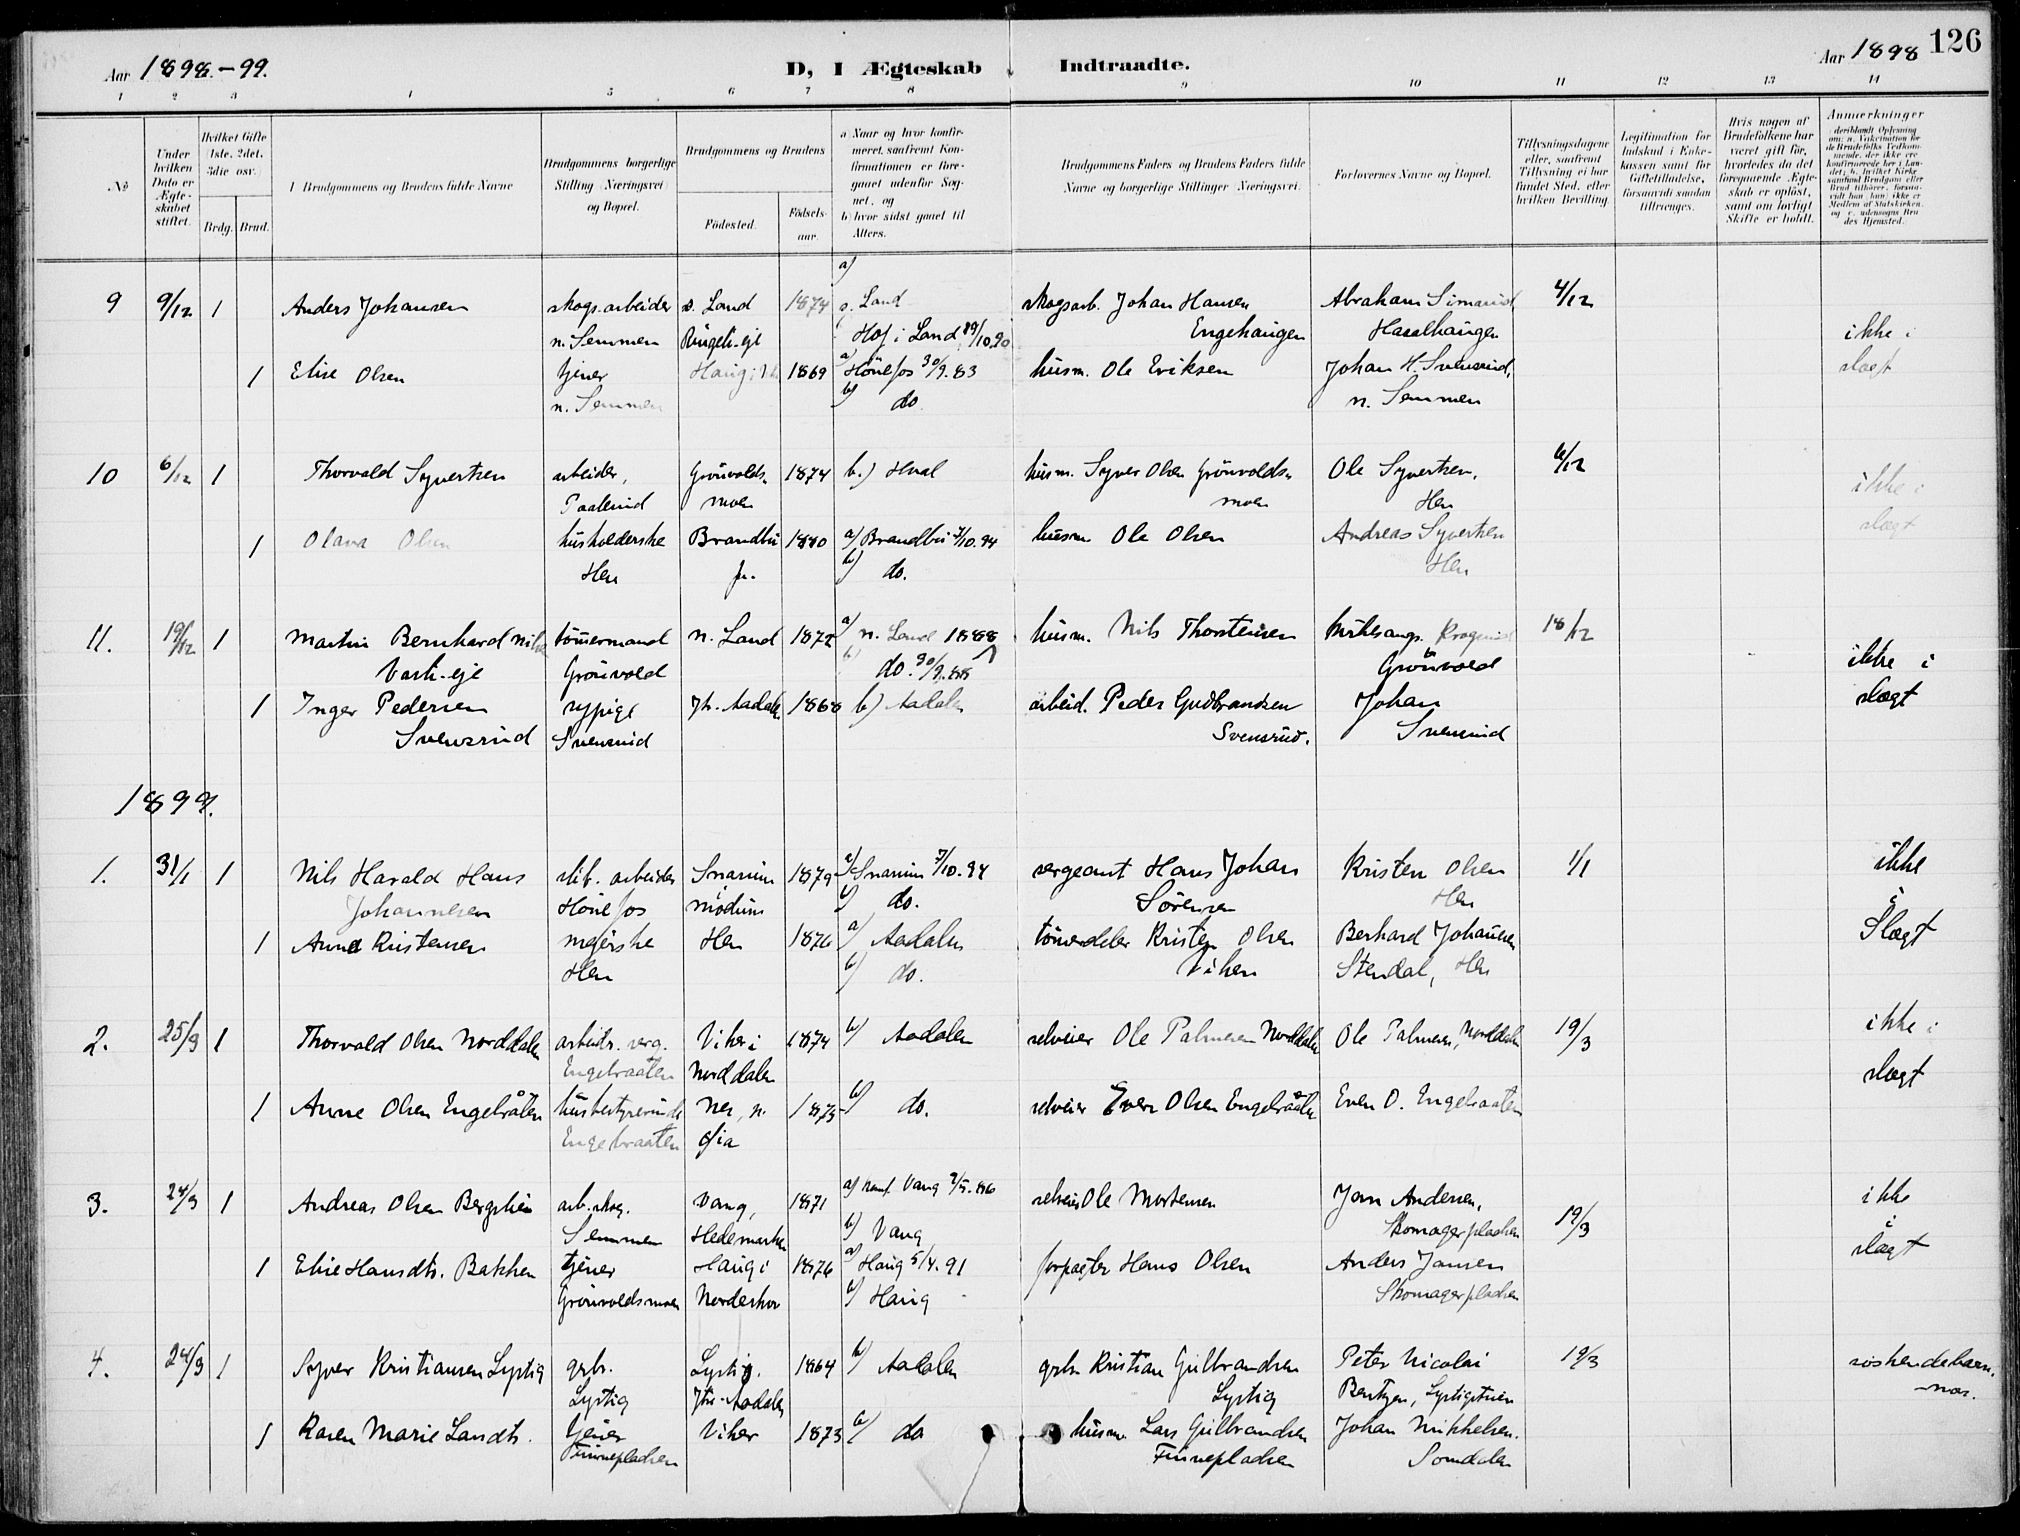 Aar 1898.-99.
D, I Ægteskab Indtraadte.
Aar 1898 126
1 2 3 4 5 6 7 8 9 10 11 12 13 14
No
Under hvilken Dato er Ægteskabet stiftet.
Hvilket Gifte 1ste, 2det, 3die osv.
Brdg. Brud.
Brudgommens og Brudens fulde Navne
Brudgommens borgerlige Stilling (Næringsvei) og Bopæl.
Brudgommens og Brudens
Fødested. Fødselsaar.
a) Naar og hvor konfirmeret, saafremt Konfirmationen er foregaaet udenfor Sognet, og
b) hvor sidst gaaet til Alters.
Brudgommens Faders og Brudens Faders fulde Navne og borgerlige Stillinger (Næringsvei).
Forlovernes Navne og Bopæl.
Tillysningsdagene eller, saafremt Tillysning ei har fundet Sted, efter hvilken Bevilling.
Legitimation for Indskud i Enkekassen samt for Giftetilladelse, forsaavidt saadan tiltrænges.
Hvis nogen af Brudefolkene har været gift før, hvorledes da det foregaaende Ægteskab er opløst, samt om lovligt Skifte er holdt.
Anmerkninger
9 9/12 1 Anders Johansen skogsarbeider s. Land 1874 a) s. Land skogsarb. Johan Hansen Abraham 4/12
n. Semmen Ringeli-eje Hof i Land 19/10.90 Engehaugen Hasalhaugen ikke i
1 Elise Olsen tjener Haug 1869 a) Hönefos 30/9.83 husm. Ole Eriksen Johan H. Svensrud, slægt
n. Semmen b) do n. Semmen
10 6/12 1 Thorvald Syvertsen arbeider, Grönvolds- 1874 b.) Hval husm. Syver Olsen Grönvolds- Ole Syvertsen, 4/12 ikke i
moen moen Hen
1 Olava Olsen husholderske Brandbu 1880 a) Brandbu 7/10.94 husm Ole Olsen Andreas Syvertsen slægt
Hen b) do. Hen
11. 19/12 1 Martin Bernhard Nilsen tömmermand n. Land 1872 a) n. Land 1888 husm. Nils Thorstensen 18/12
Grönvold b) do. 30/9.88 Grönvold ikke i
1 Inger Pedersen sypige Ytr. Aadalen 1868 b) Aadalen arbeid. Peder Gudbrandsen Johan slægt
Svensrud Svensrud Svensrud. Svensrud
1899.
1. 31/1 1 Nils Harald Hans slib. arbeider Snarum 1879 a) Snarum 7/10.94 sergeant Hans Johan Kristen Olsen 1/1 ikke
Johannesen Hönefos Modum b) do. Sörensen Hen i
1 Anna Kristensen meierske Hen 1876 a) Aadalen tömmerdeler Kristen Olsen Berhard Johansen Slægt
Hen b) do. Viken Stendal, Hen
2. 25/3 1 Thorvald Olsen Norddalen Viker i 1874 b) Aadalen selveier Ole Palmesen Norddalen Ole Palmesen, Norddalen 19/3 ikke i
Engebraaten Norddalen slægt
1 Anne Olsen Engebråten husbestyrerinde Nes, n. 1873 b) do. selveier Even Olsen Engebråten Even O. Engebraaten
Engebraaten
3. 24/3 1 Andreas Olsen Bergslien arb. skog. Vang, 1871 a) Vang 2/5.86 selveier Ole Mortensen Jørn Andersen, 19/3 ikke
Semmen Hedemarken b) Vang Skomagerpladsen i
1 Elise Hansdtr. Bakken tjener Haug i 1876 a) Haug 5/4.91 forpagter Hans Olsen Anders Jansen slægt
Grönvoldsmoen Norderhov b) Haug Skomagerpladsen
4. 24/3 1 Syver Kristiansen Lystig grbr. Lystig, 1864 b) Aadalen grbr. Kristian Gulbrandsen Peter Nicolai 19/3 söskendebarn.
Lystig Ytr.-Aadalen Lystig Bentzen, Lystigstuen
1 Karen Marie Larsdtr. tjener Viker 1873 b) do husm. Lars Gulbrandsen Johan Mikkelsen.
Finnepladsen Finnepladsen Somdalen